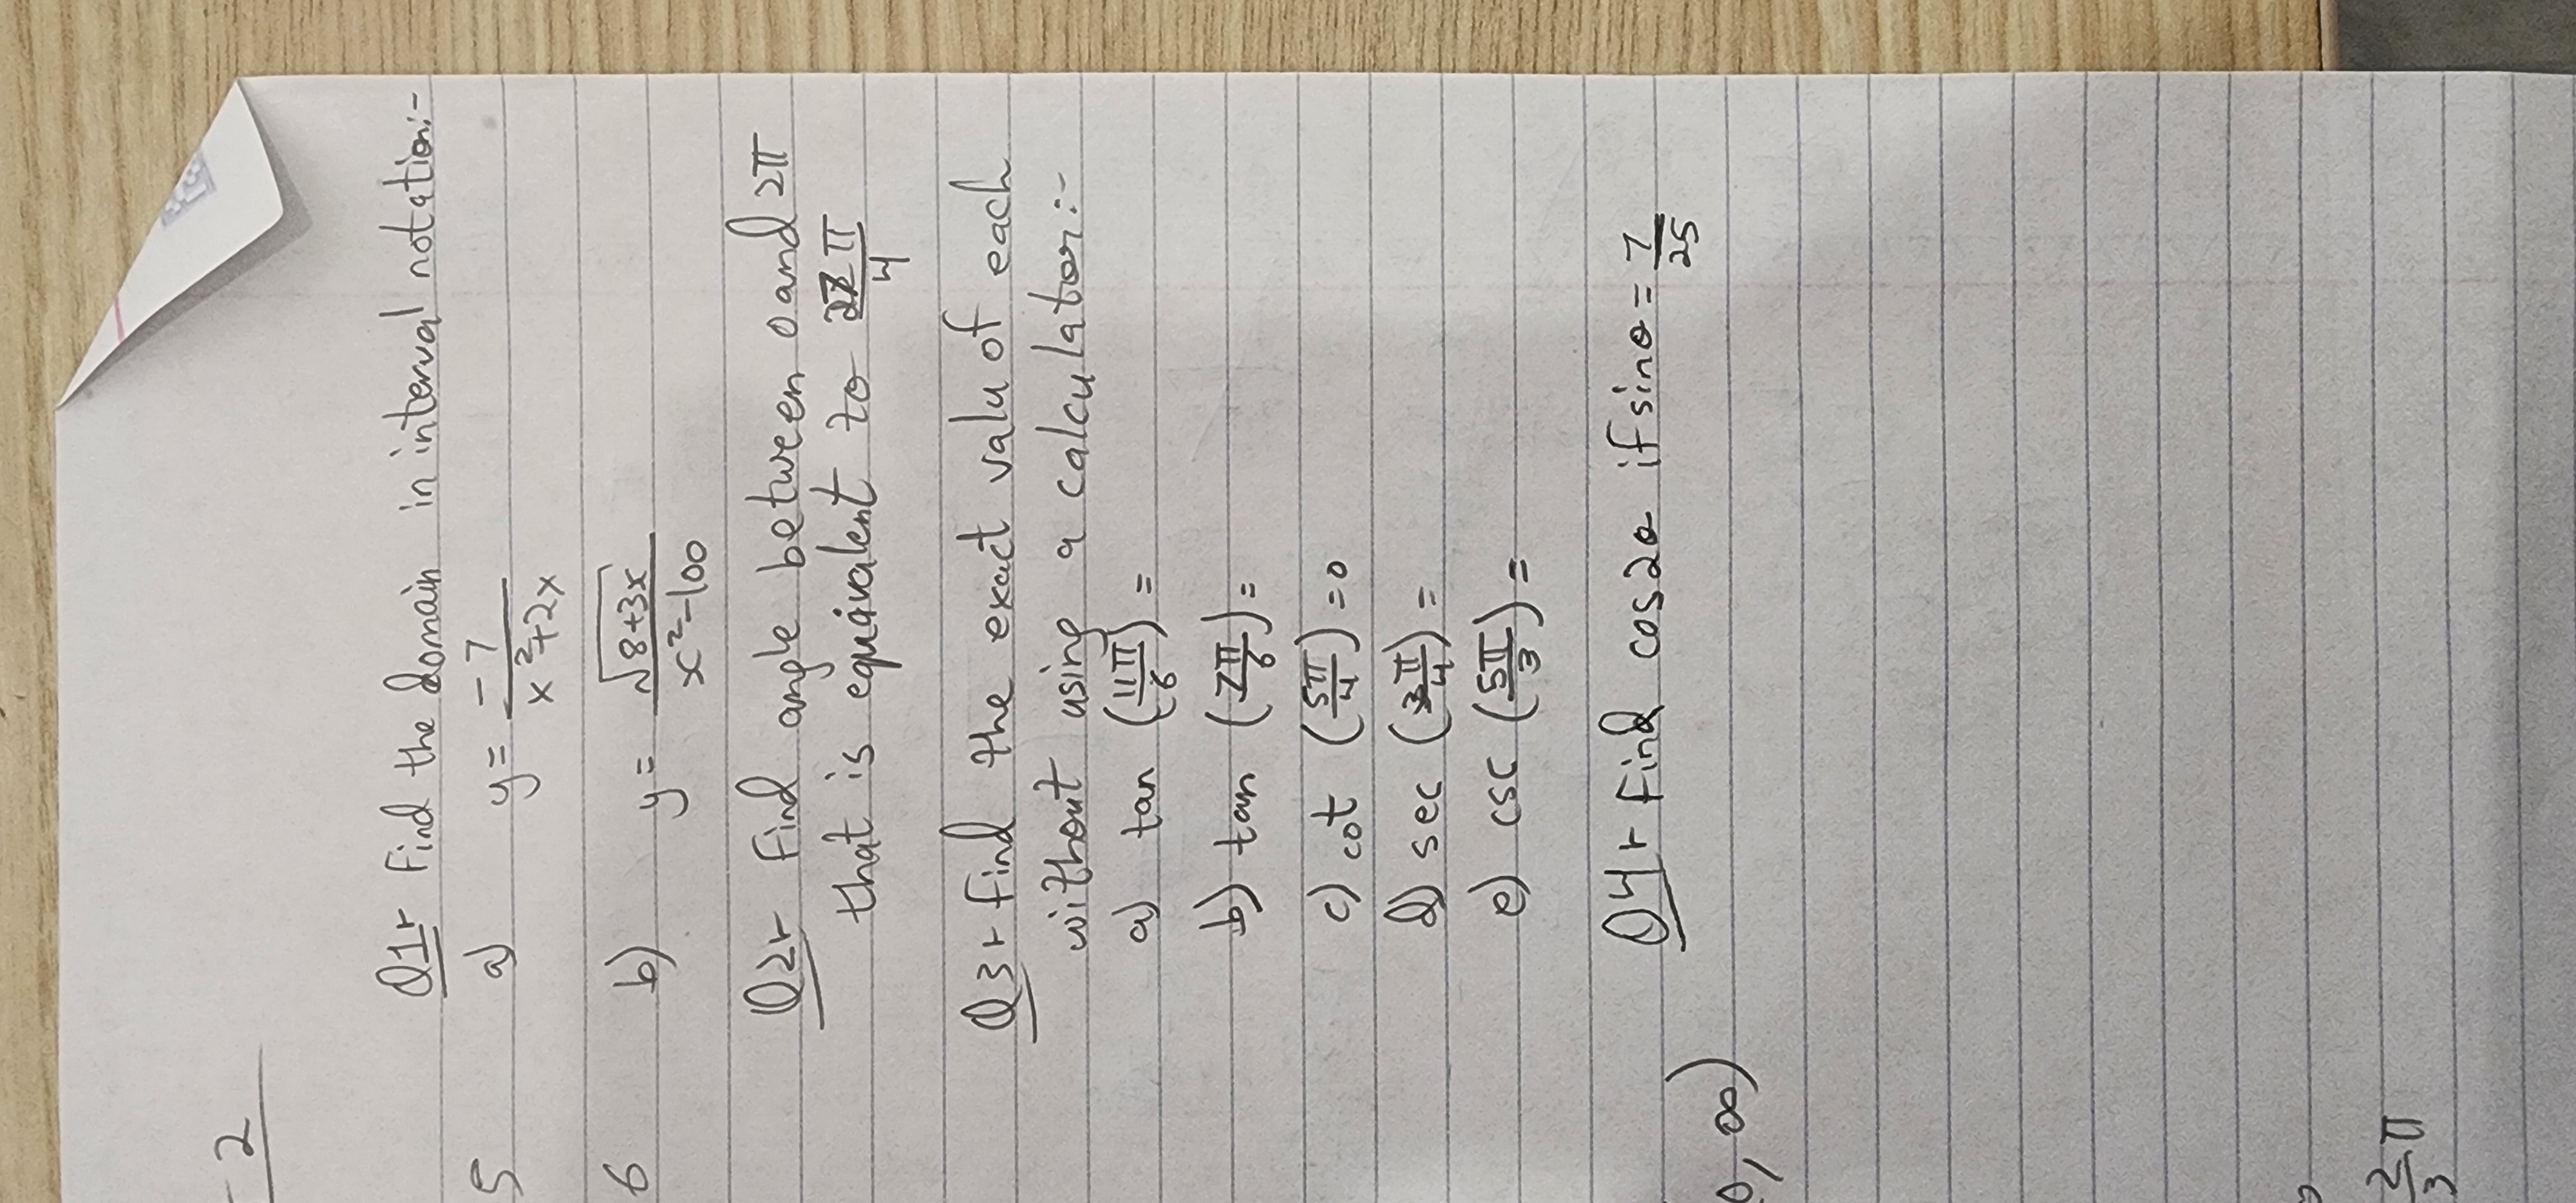 Q1r Find the domain in interval notation:-
a) y = -7/(x²+2x)
b) y = √(8+3x)/(x²-100)
Q2r Find angle between 0 and 2π
that is equivalent to 27π/4
Q3r Find the exact valu of each
without using a calculator:-
a) tan (11π/6) =
b) tan (7π/6) =
c) cot (5π/4) = 0
d) sec (3π/4) =
e) csc (5π/3) =
Q4r Find cos2θ if sinθ = 7/25
2
5
6
, ∞)
2π/3